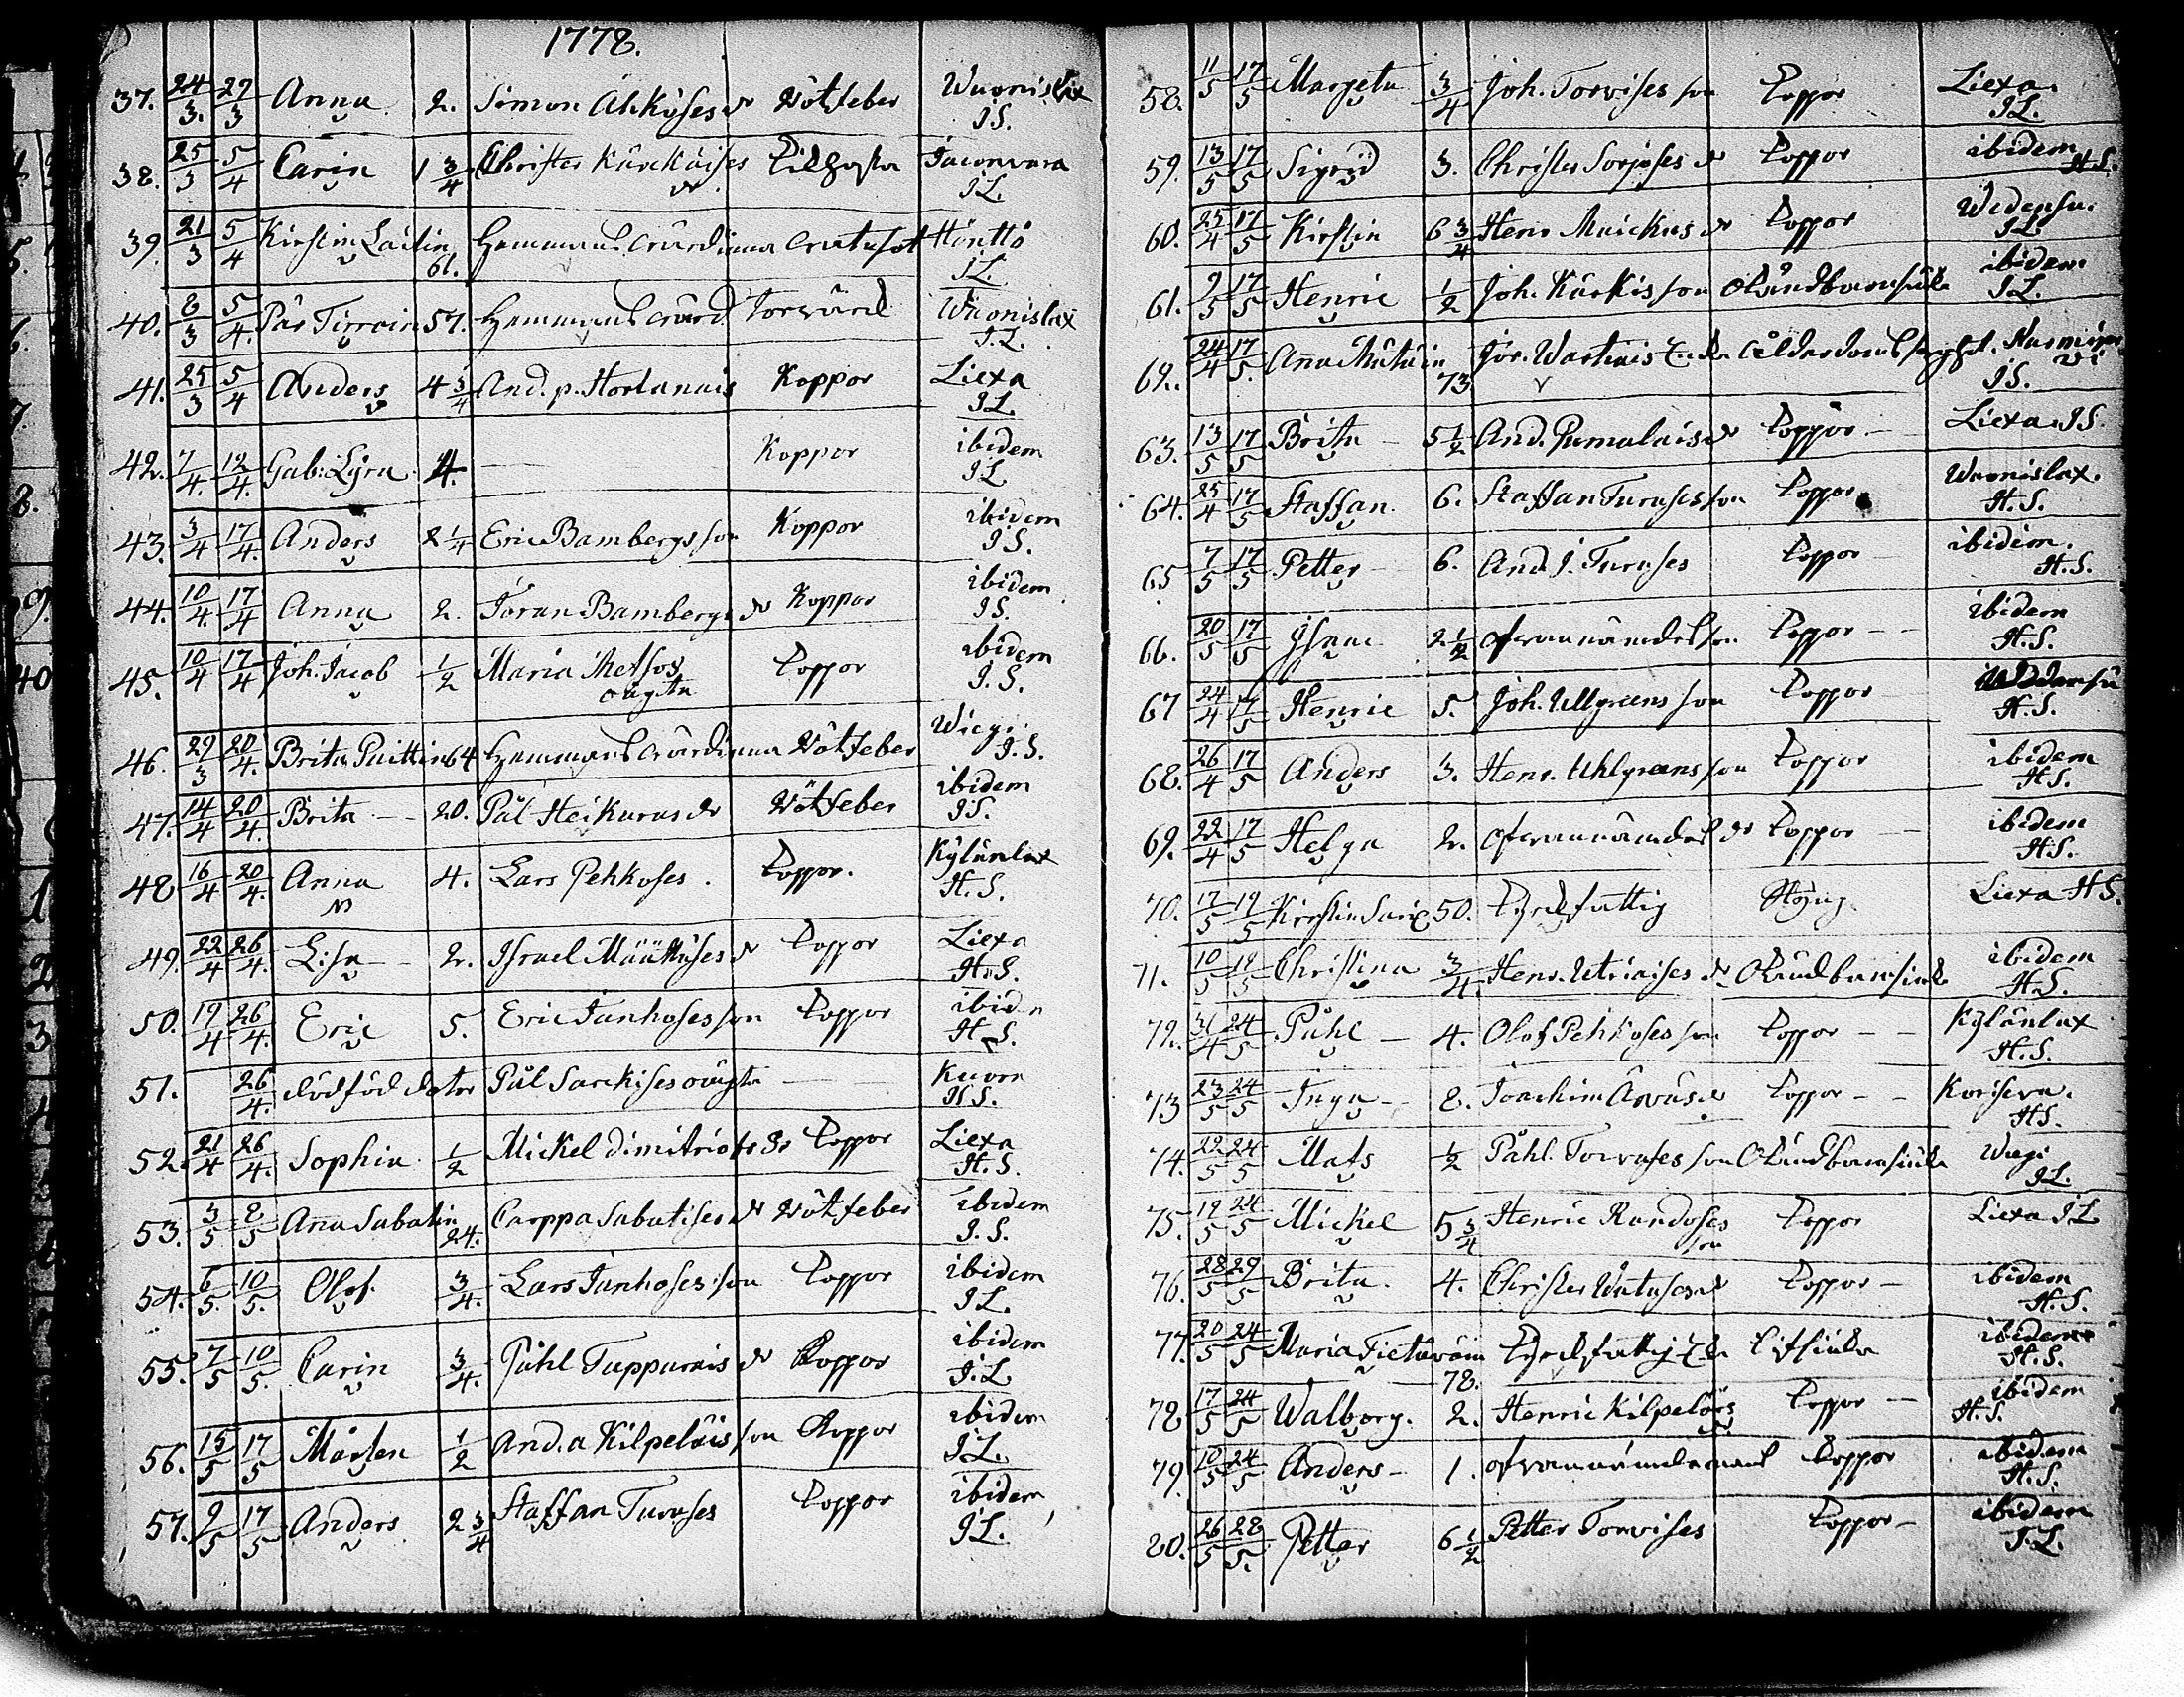 1778.
37. 24/3. 29/3 Anna 2. Simon Ahkyses dr Rötfeber Wuonislax
J S.
38. 25/3 5/4 Carin 1 3/4 Christer Kärckäises Jaconvara
dr J L.
39. 21/3 5/4 Kirstin Laitin 61. Hemmans Hönttö
J L.
40. 8/3 5/4. Pär Tirroin 57. Hemmans Wuonislax
J. L.
41. 25/3 5/4 Anders 4 3/4 And. p. Hortanais Koppor Liexa
J L.
42. 7/4. 12/4. Gab. Lyra 4. Koppor ibidem
J L.
43. 3/4 17/4. Anders 2 1/4 Eric Bambergs son Koppor ibidem
J S.
44. 10/4. 17/4 Anna 2. Jöran Bambergs dr Koppor ibidem
J S.
45. 10/4 17/4 Joh. Jacob 1/2 Maria Koppor ibidem
oägta J. S.
46. 29/3 20/4. Brita Puittin 64 Hemmans Rötfeber Wiegi
J. S.
47. 14/4 20/4. Brita 20. Pål Heikuras dr Rötfeber ibidem
J S.
48 16/4 20/4. Anna 4. Lars Pehkoses. Koppor. Kylänlax
H. S.
49. 22/4 26/4. Lisa 2. Israel dr Koppor Liexa
H. S.
50. 19/4 26/4. Eric 5. Eric Janhoses son Koppor
H S.
51. 26/4. dödföd doter Pål Sarckises oägta Kuora
H S.
52. 21/4 26/4. Sophia 1/2 Mickel Dimitriofs dr Koppor Liexa
H. S.
53. 3/5 8/5 Ana Sabatin 24. Carppa Sabatises dr Rötfeber ibidem
J. S.
54. 6/5. 10/5. Olof 3/4. Lars Janhoses son Koppor ibidem
J L.
55. 7/5 10/5. Carin 3/4. Påhl Tuppurais dr Koppor ibidem
J. L.
56. 15/5 17/5 Mårten 1/2 And. a Kilpeläis son Koppor ibidem
J L.
57. 9/5 17/5 Anders 2 3/4 Staffan Turuses Koppor ibidem
J L.
58. 11/5 17/5 Margeta 3/4 Joh. Torvises son Koppor Liexa
J L.
59. 13/5 17/5 Sigrid 3. Christer Sorjoses dr Koppor ibidem
H S.
60. 23/4 17/5 Kirstin 6 3/4 Henr Muickus dr Koppor Widensu.
J L.
61. 9/5 17/5 Henric 1/2 Joh. Kärkis son Okändbarnsiuka ibidem
J L.
62. 24/4 17/5. Anna Mutuin 73 Jör. Wartiais Enka ålderdoms
J S.
63. 13/5 17/5 Brita 5 1/2 And. Pumalais dr Koppor Liexa J S.
64. 25/4 17/5 Staffan 6. Staffan Turuses son Koppor Wuonislax.
H. S.
65 7/5 17/5 Petter 6. And. J. Turuses Koppor ibidem.
H. S.
66. 20/5 17/5 Isaac 2 1/2 ofvannämdes son Koppor ibidem
H. S.
67 24/4 17/5 Henric 5. Joh. Ullgreens son Koppor
H. S.
68. 26/4 17/5 Anders 3. Henr. Uhlgreens son Koppor ibidem
H S.
69. 22/4 17/5 Helga 2. ofvannämdes dr Koppor ibidem
H S.
70. 17/5 19/5 Kirstin 50. fattig Liexa H S.
71. 10/5 18/5 Christina 3/4. Henr. Utriaises dr Okändbarnsiuka ibidem
H S.
72. 24/5 Påhl 4. Olof Pehkoses son Koppor Kylänlax
H. S.
73 23/5 24/5 Inga 8. Joachim dr Koppor
H S.
74. 22/5 24/5 Mats 1/2 Påhl Torvuses son Okändbarnsiuka Wiegi
J L.
75. 19/5 24/5 Mickel 5 3/4 Henric Kondoses son Koppor Liexa J L
76. 28/5 29/5 Brita. 4. Christer dr Koppor ibidem
H. S.
77. 20/5 24/5 Maria 78. ibidem
H. S.
78 17/5 24/5 Walborg. 2. Henric Kilpeläis Koppor ibidem
H. S.
79. 10/5 24/5 Anders 1. ofvannämde Koppor ibidem
H. S.
80. 26/5 28/5. Petter 6 1/2 Petter Torvises Koppor ibidem
J. L.